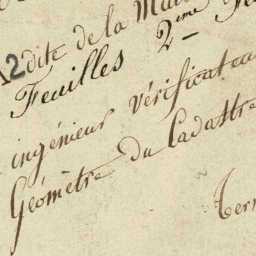 A2 dite de la Mai
Feuilles 2ème Fe
ingénieur vérificateu
Géomètre du Cadastre
Ter